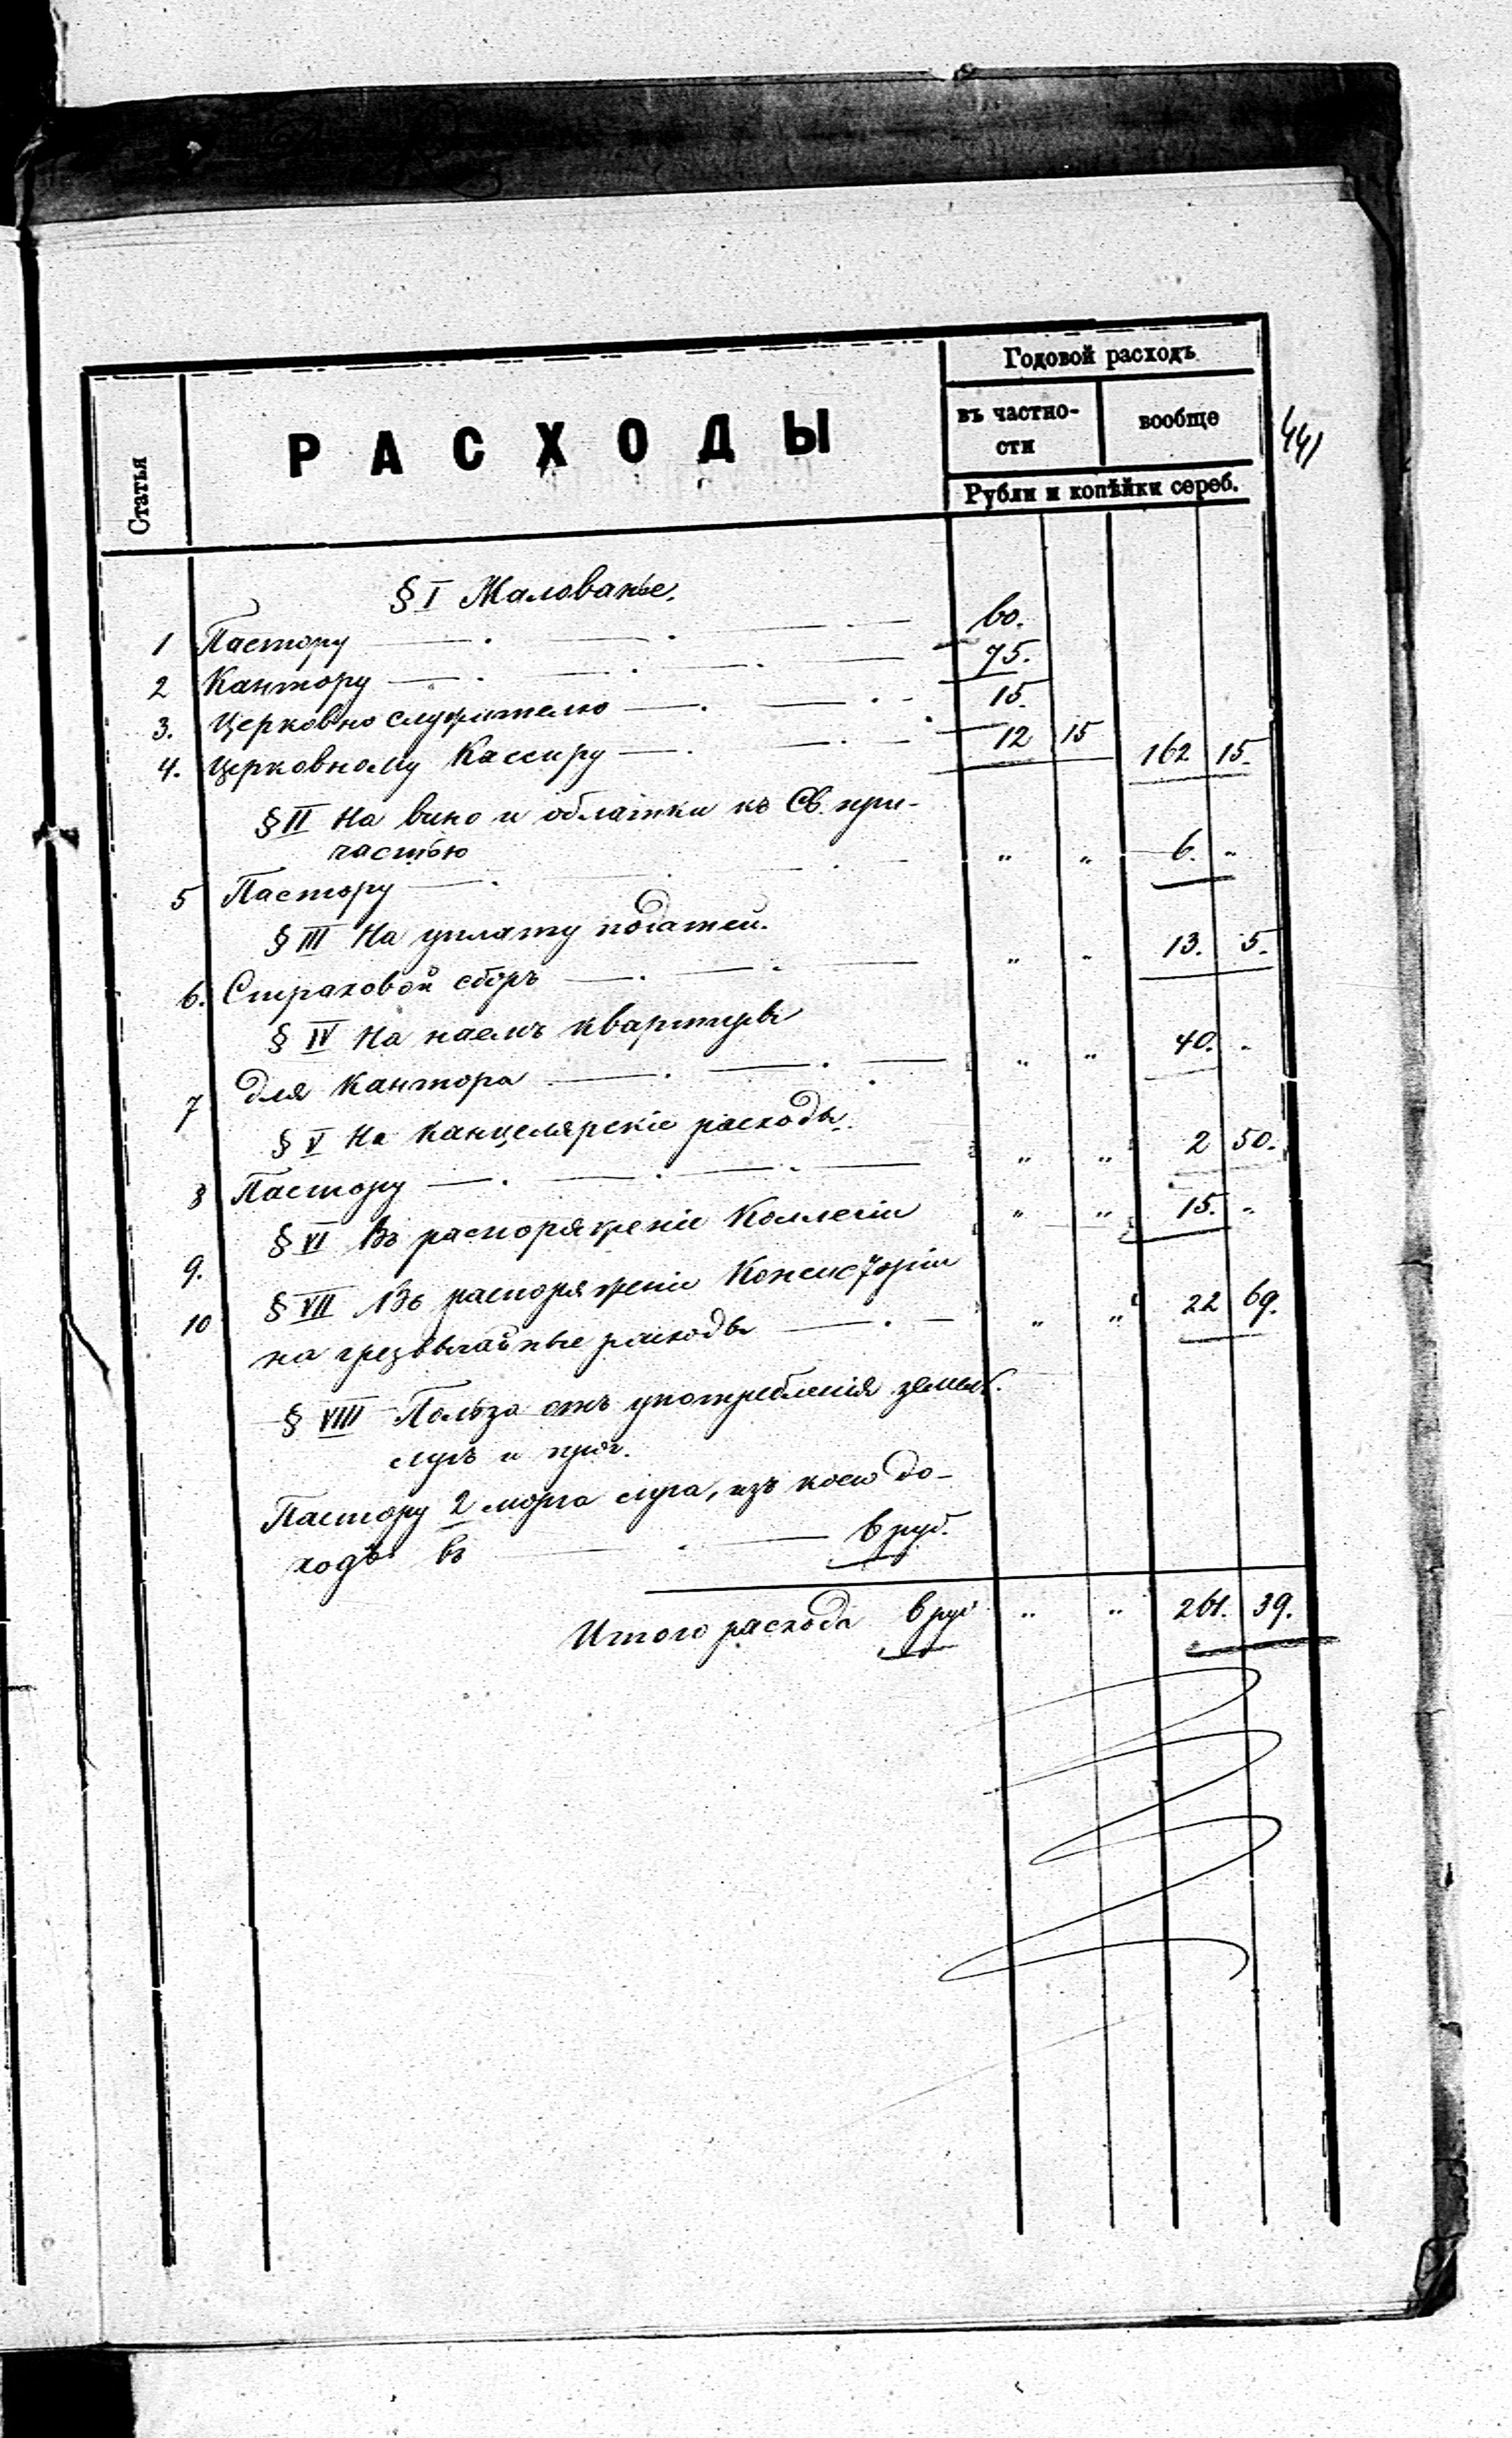 Годовой расходъ
РАСХОДЫ
въ частно-
сти
вообще
441
Статья
Рубли и копѣйки сереб.
§ I Жалованье.
1 Пастору 60.
2 Кантору 75.
3. Церковнослужителю 15.
4. Церковному Кассиру 12 15 162 15.
§ II На вино и облатки къ Св. при-
частью
5 Пастору " " 6. "
§ III На уплату податей.
6. Страховой сборъ " " 13. 5.
§ IV На наемъ квартиры
7 для Кантора " " 40. "
§ V На Канцелярскіе расходы.
8 Пастору " " 2 50.
9. § VI Въ распоряженіе Коллегіи " " 15. "
10 § VII Въ распоряженіе Консисторіи
на чрезвычайные расходы " " 22 69.
§ VIII Польза отъ употребленія земель.
лугъ и проч.
Пастору 2 морга луга, изъ коего до-
ходъ въ 6 руб.
Итого расхода 6 руб " " 261. 39.